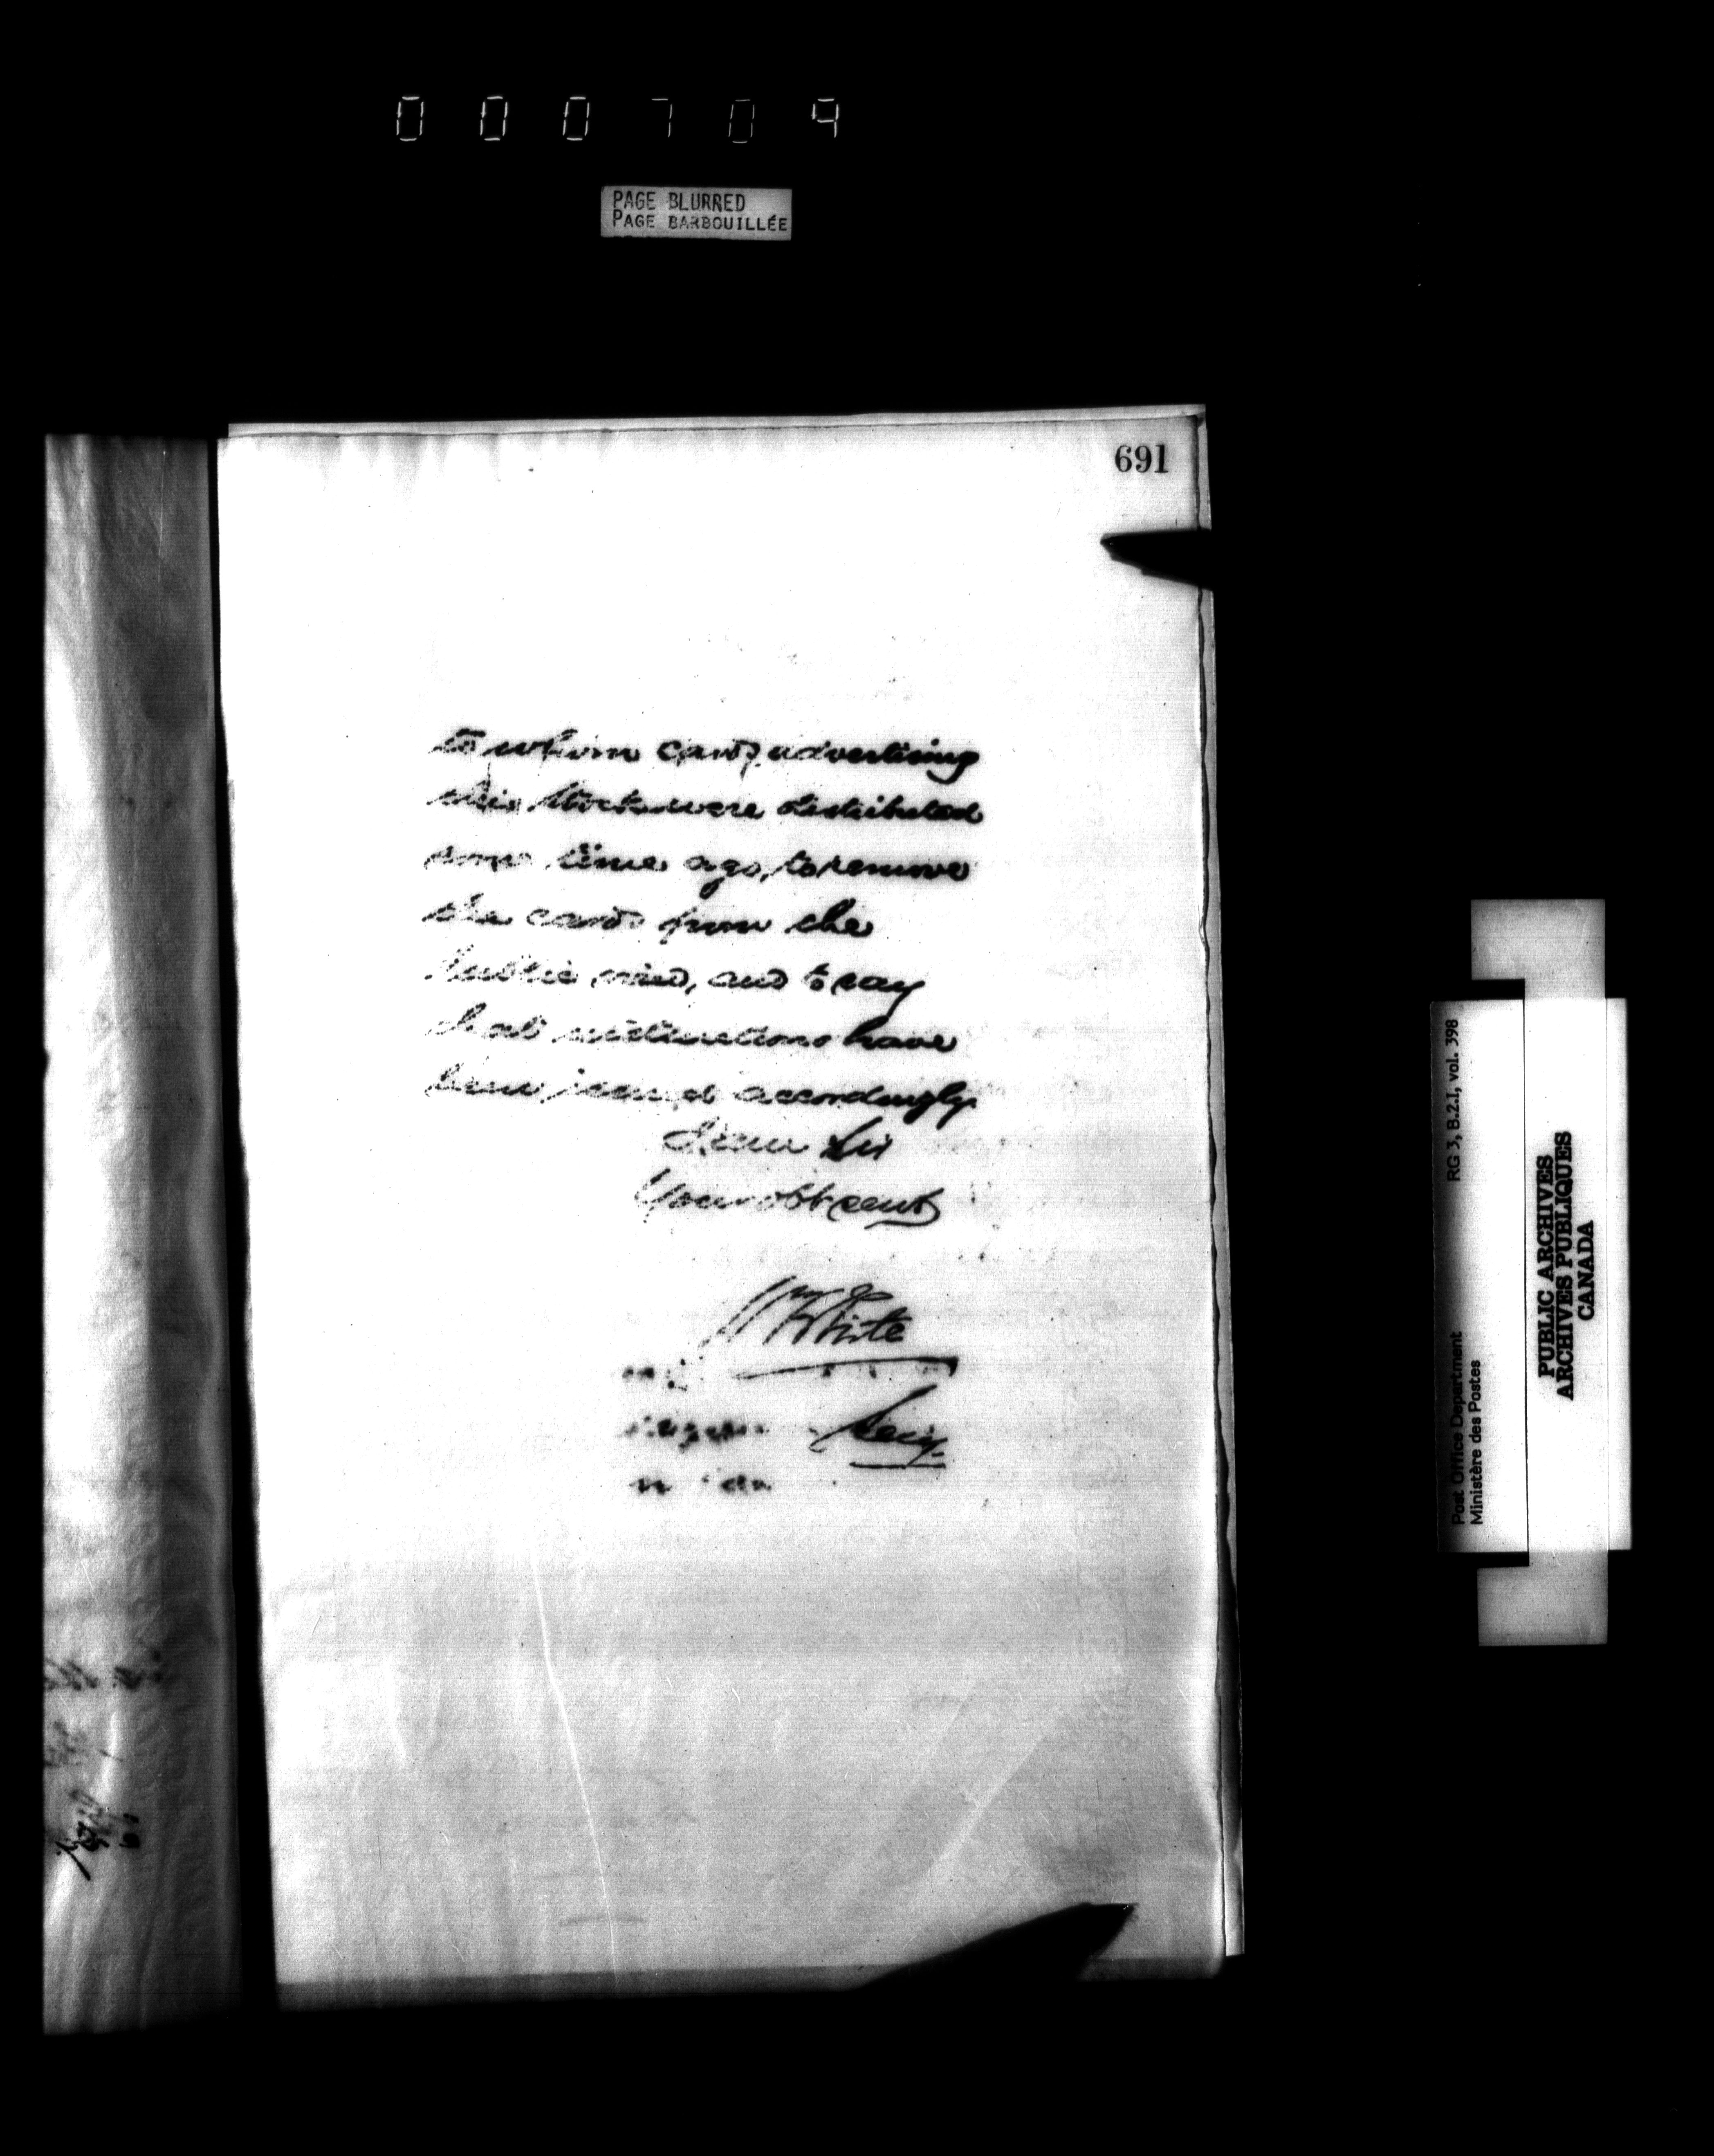 000709
PAGE BLURRED
PAGE BARBOUILLÉE
691
to whom cards advertising
this Stock were distributed
some time ago, to remove
the cards from the
public view, and to say
that instructions have
been issued accordingly.
I am Sir
Your obt servt
Wm White
Secy.
RG 3, B.2.1, vol. 398
Post Office Department
Ministère des Postes
PUBLIC ARCHIVES
ARCHIVES PUBLIQUES
CANADA